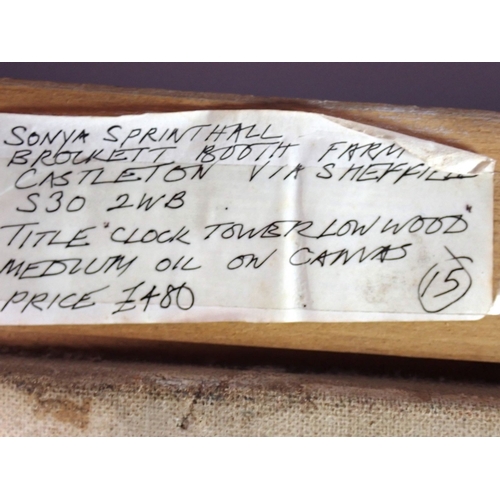 SONYA SPRINTHALL
BROCKETT BOOTH FARM
CASTLETON VIA SHEFFIELD
S30 2WB
TITLE "CLOCK TOWER LOW WOOD"
MEDIUM OIL ON CANVAS
PRICE £480
15